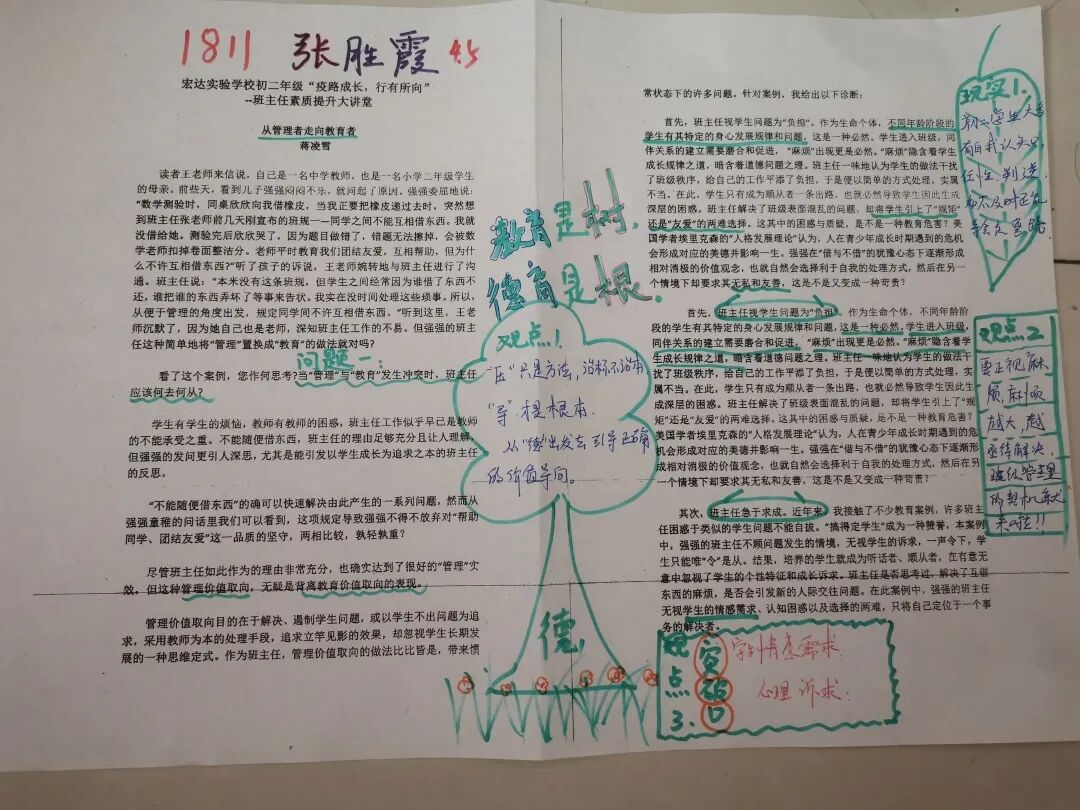 1811 张胜霞 4.5
宏达实验学校初二年级“疫路成长，行有所向”
--班主任素质提升大讲堂
从管理者走向教育者
蒋凌雪
读者王老师来信说，自己是一名中学教师，也是一名小学二年级学生
的母亲。前些天，看到儿子强强闷闷不乐，就问起了原因。强强委屈地说：
“数学测验时，同桌欣欣向我借橡皮，当我正要把橡皮递过去时，突然想
到班主任张老师前几天刚宣布的班规——同学之间不能互相借东西。我就
没借给她。测验完后欣欣哭了，因为题目做错了，错题无法擦掉，会被数
学老师扣掉卷面整洁分。老师平时教育我们团结友爱，互相帮助，但为什
么不许互相借东西？”听了孩子的诉说，王老师婉转地与班主任进行了沟
通。班主任说：“本来没有这条班规，但学生之间经常因为谁借了东西不
还，谁把谁的东西弄坏了等事来告状。我实在没时间处理这些琐事。所以，
从便于管理的角度出发，规定同学间不许互相借东西。”听到这里，王老
师沉默了，因为她自己也是老师，深知班主任工作的不易。但强强的班主
任这种简单地将“管理”置换成“教育”的做法就对吗？
问题一：
看了这个案例，您作何思考？当“管理”与“教育”发生冲突时，班主任
应该何去何从？
学生有学生的烦恼，教师有教师的困惑，班主任工作似乎早已是教师
的不能承受之重。不能随便借东西，班主任的理由足够充分且让人理解，
但强强的发问更引人深思，尤其是能引发以学生成长为追求之本的班主任
的反思。
“不能随便借东西”的确可以快速解决由此产生的一系列问题，然而从
强强童稚的问话里我们可以看到，这项规定导致强强不得不放弃对“帮助
同学、团结友爱”这一品质的坚守，两相比较，孰轻孰重？
尽管班主任如此作为的理由非常充分，也确实达到了很好的“管理”实
效，但这种管理价值取向，无疑是背离教育价值取向的表现。
管理价值取向目的在于解决、遏制学生问题，或以学生不出问题为追
求，采用教师为本的处理手段，追求立竿见影的效果，却忽视学生长期发
展的一种思维定式。作为班主任，管理价值取向的做法比比皆是，带来惯
教育是树，
德育是根。
观点1.
“压”只是方法，治标不治本，
“导”提根本．
从“德”出发去引导正确
的价值导向．
德
常状态下的许多问题。针对案例，我给出以下诊断：
首先，班主任视学生问题为“负担”。作为生命个体，不同年龄阶段的
学生有其特定的身心发展规律和问题，这是一种必然。学生进入班级，同
伴关系的建立需要磨合和促进，“麻烦”出现更是必然。“麻烦”隐含着学生
成长规律之道，暗含着道德问题之理。班主任一味地认为学生的做法干扰
了班级秩序，给自己的工作平添了负担，于是便以简单的方式处理，实
属不当。在此，学生只有成为顺从者一条出路，也就必然导致学生因此生成
深层的困惑。班主任解决了班级表面混乱的问题，却将学生引上了“规矩”
还是“友爱”的两难选择。这其中的困惑与质疑，是不是一种教育危害？美
国学者埃里克森的“人格发展理论”认为，人在青少年成长时期遇到的危
机会形成对应的美德并影响一生。强强在“借与不借”的犹豫心态下逐渐形成
相对消极的价值观念，也就自然会选择利于自我的处理方式，然后在另一个
情境下却要求其无私和友善，这是不是又变成一种苛责？
首先，班主任视学生问题为“负担”。作为生命个体，不同年龄阶
段的学生有其特定的身心发展规律和问题，这是一种必然。学生进入班级，
同伴关系的建立需要磨合和促进，“麻烦”出现更是必然。“麻烦”隐含着学
生成长规律之道，暗含着道德问题之理。班主任一味地认为学生的做法干
扰了班级秩序，给自己的工作平添了负担，于是便以简单的方式处理，实
属不当。在此，学生只有成为顺从者一条出路，也就必然导致学生因此生
成深层的困惑。班主任解决了班级表面混乱的问题，却将学生引上了“规
矩”还是“友爱”的两难选择，这其中的困惑与质疑，是不是一种教育危害？
美国学者埃里克森的“人格发展理论”认为，人在青少年成长时期遇到的危
机会形成对应的美德并影响一生。强强在“借与不借”的犹豫心态下逐渐形
成相对消极的价值观念，也就自然会选择利于自我的处理方式，然后在另
一个情境下却要求其无私和友善，这是不是又变成一种苛责？
其次，班主任急于求成。近年来，我接触了不少教育案例，许多班主
任困惑于类似的学生问题不能自拔。“搞得定学生”成为一种赞誉，本案例
中，强强的班主任不顾问题发生的情境，无视学生的诉求，一声令下，学
生只能唯“令”是从。结果，培养的学生就成为听话者、顺从者，在有意无
意中忽视了学生的个性特征和成长诉求。班主任是否思考过，解决了互借
东西的麻烦，是否会引发新的人际交往问题。在此案例中，强强的班主任
无视学生的情感需求、认知困惑以及选择的两难，只将自己定位于一个事
务的解决者。
现实1.
初二学生大多
有自我认知
任性，判逆．
如不及时正确
观点2
要正视麻
烦，麻烦
越大，越
亟待解决，
班级管理
的契机就
来啦!!
观点3.
突破口
学生情感需求；
心理诉求；